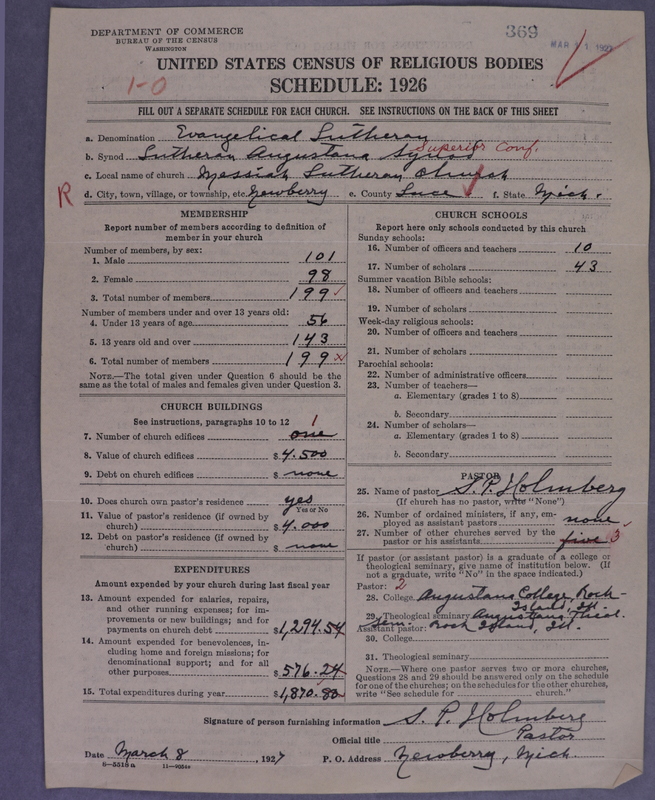 DEPARTMENT OF COMMERCE
BUREAU OF THE CENSUS
WASHINGTON
369
MAR 11 1927
UNITED STATES CENSUS OF RELIGIOUS BODIES
1-0
SCHEDULE: 1926
FILL OUT A SEPARATE SCHEDULE FOR EACH CHURCH. SEE INSTRUCTIONS ON THE BACK OF THIS SHEET
a. Denomination Evangelical Lutheran
b. Synod Lutheran Augustana Synod Superior Conf.
c. Local name of church Messiah Lutheran Church
R d. City, town, village, or township, etc. Newberry e. County Luce f. State Mich.
MEMBERSHIP
Report number of members according to definition of
member in your church
Number of members, by sex:
1. Male 101
2. Female 98
3. Total number of members 199
Number of members under and over 13 years old:
4. Under 13 years of age 56
5. 13 years old and over 143
6. Total number of members 199 x
NOTE.—The total given under Question 6 should be the
same as the total of males and females given under Question 3.
CHURCH BUILDINGS
See instructions, paragraphs 10 to 12 1
7. Number of church edifices one
8. Value of church edifices $ 4.500
9. Debt on church edifices $ none
10. Does church own pastor's residence yes
Yes or No
11. Value of pastor's residence (if owned by
church) $ 4.000
12. Debt on pastor's residence (if owned by
church) $ none
EXPENDITURES
Amount expended by your church during last fiscal year
13. Amount expended for salaries, repairs,
and other running expenses; for im-
provements or new buildings; and for
payments on church debt $ 1,294.54
14. Amount expended for benevolences, in-
cluding home and foreign missions; for
denominational support; and for all
other purposes $ 576.24
15. Total expenditures during year $ 1,870.88
CHURCH SCHOOLS
Report here only schools conducted by this church
Sunday schools:
16. Number of officers and teachers 10
17. Number of scholars 43
Summer vacation Bible schools:
18. Number of officers and teachers
19. Number of scholars
Week-day religious schools:
20. Number of officers and teachers
21. Number of scholars
Parochial schools:
22. Number of administrative officers
23. Number of teachers—
a. Elementary (grades 1 to 8)
b. Secondary
24. Number of scholars—
a. Elementary (grades 1 to 8)
b. Secondary
PASTOR
25. Name of pastor S. P. Holmberg
(If church has no pastor, write "None")
26. Number of ordained ministers, if any, em-
ployed as assistant pastors none
27. Number of other churches served by the
pastor or his assistants five 3
If pastor (or assistant pastor) is a graduate of a college or
theological seminary, give name of institution below. (If
not a graduate, write "No" in the space indicated.)
Pastor: 2
28. College Augustana College, Rock-
Island, Ill.
29. Theological seminary Augustana Theol.
Sem. Rock Island, Ill.
Assistant pastor:
30. College
31. Theological seminary
NOTE.—Where one pastor serves two or more churches,
Questions 28 and 29 should be answered only on the schedule
for one of the churches; on the schedules for the other churches,
write "See schedule for church."
Signature of person furnishing information S. P. Holmberg
Official title Pastor
Date March 8, 1927 P. O. Address Newberry, Mich.
8-5518a 11-9054a